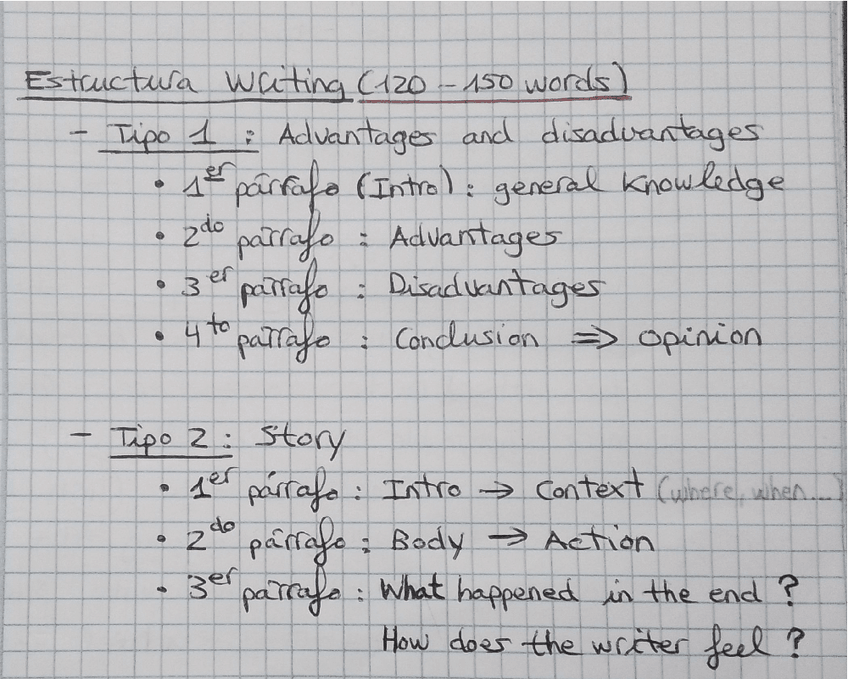 Estructura Writing (120 - 150 words)
- Tipo 1 : Advantages and disadvantages
• 1er párrafo (Intro) : general knowledge
• 2do párrafo : Advantages
• 3er párrafo : Disadvantages
• 4to párrafo : Conclusion => opinion
- Tipo 2 : Story
• 1er párrafo : Intro → Context (where, when...)
• 2do párrafo : Body → Action
• 3er párrafo : What happened in the end ?
How does the writer feel ?